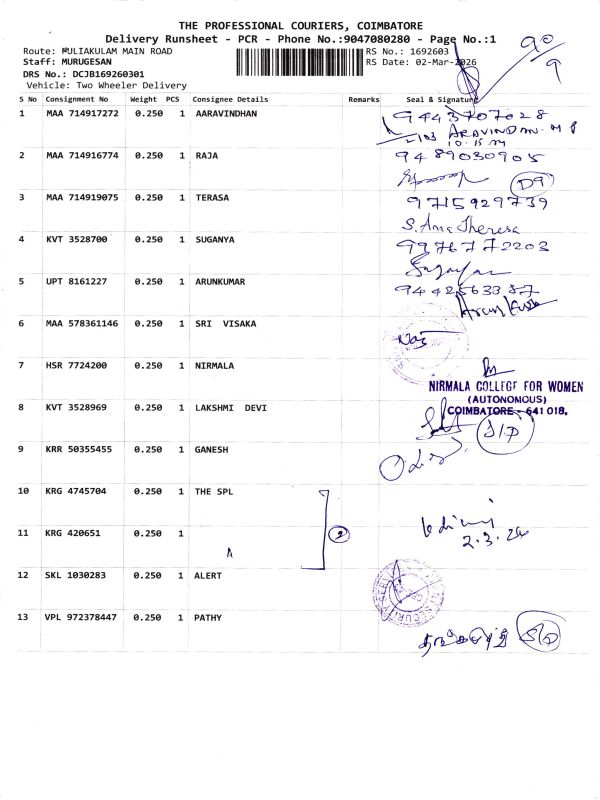 THE PROFESSIONAL COURIERS, COIMBATORE
Delivery Runsheet - PCR - Phone No.:9047080280 - Page No.:1
Route: PULIAKULAM MAIN ROAD RS No.: 1692603
Staff: MURUGESAN RS Date: 02-Mar-2026
DRS No.: DCJB169260301
Vehicle: Two Wheeler Delivery
90/9
S No Consignment No Weight PCS Consignee Details Remarks Seal & Signature
1 MAA 714917272 0.250 1 AARAVINDHAN 9443707028
ARAVINDAN. M P
10.15
2 MAA 714916774 0.250 1 RAJA 9489030905
D9
3 MAA 714919075 0.250 1 TERASA 9715929739
S. Ana Theresa
4 KVT 3528700 0.250 1 SUGANYA 9976772203
5 UPT 8161227 0.250 1 ARUNKUMAR 9442563387
6 MAA 578361146 0.250 1 SRI VISAKA
7 HSR 7724200 0.250 1 NIRMALA
NIRMALA COLLEGE FOR WOMEN
(AUTONOMOUS)
COIMBATORE - 641 018.
8 KVT 3528969 0.250 1 LAKSHMI DEVI
9 KRR 50355455 0.250 1 GANESH
10 KRG 4745704 0.250 1 THE SPL
11 KRG 420651 0.250 1 2
2.3.26
12 SKL 1030283 0.250 1 ALERT
SECURITY
13 VPL 972378447 0.250 1 PATHY